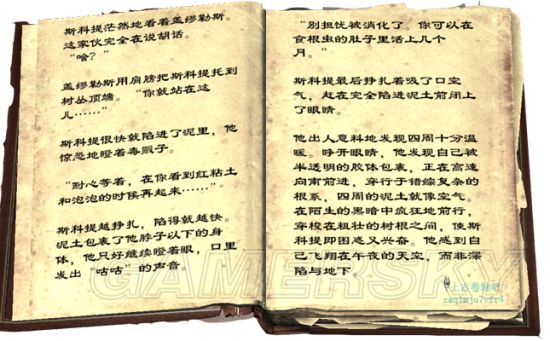 斯科提茫然地看着盖缪勒斯。
这家伙完全在说胡话。
“啥？”
盖缪勒斯用肩膀把斯科提托到
树丛顶端。“你就站在这
儿……”
斯科提很快就陷进了泥里，他
惊恐地瞪着毒贩子。
“耐心等着，在你看到红粘土
和泡泡的时候再起来……”
斯科提越挣扎，陷得就越快。
泥土包裹了他脖子以下的身
体，他只好继续瞪着眼，口里
发出“咕咕”的声音。
“别担忧被消化了。你可以在
食根虫的肚子里活上几个
月。”
斯科提最后挣扎着吸了口空
气，赶在完全陷进泥土前闭上
了眼睛。
他出人意料地发现四周十分温
暖。睁开眼睛，他发现自己被
半透明的胶体包裹，正在高速
向南前进，穿行于错综复杂的
根系，四周的泥土就像空气。
在陌生的黑暗中疯狂地前行，
穿梭在粗壮的树根之间，使斯
科提即困惑又兴奋。他感到自
己飞翔在午夜的天空，而非深
陷与地下。
上古卷轴吧
zaq1mju7vfr4
GAMERSKY